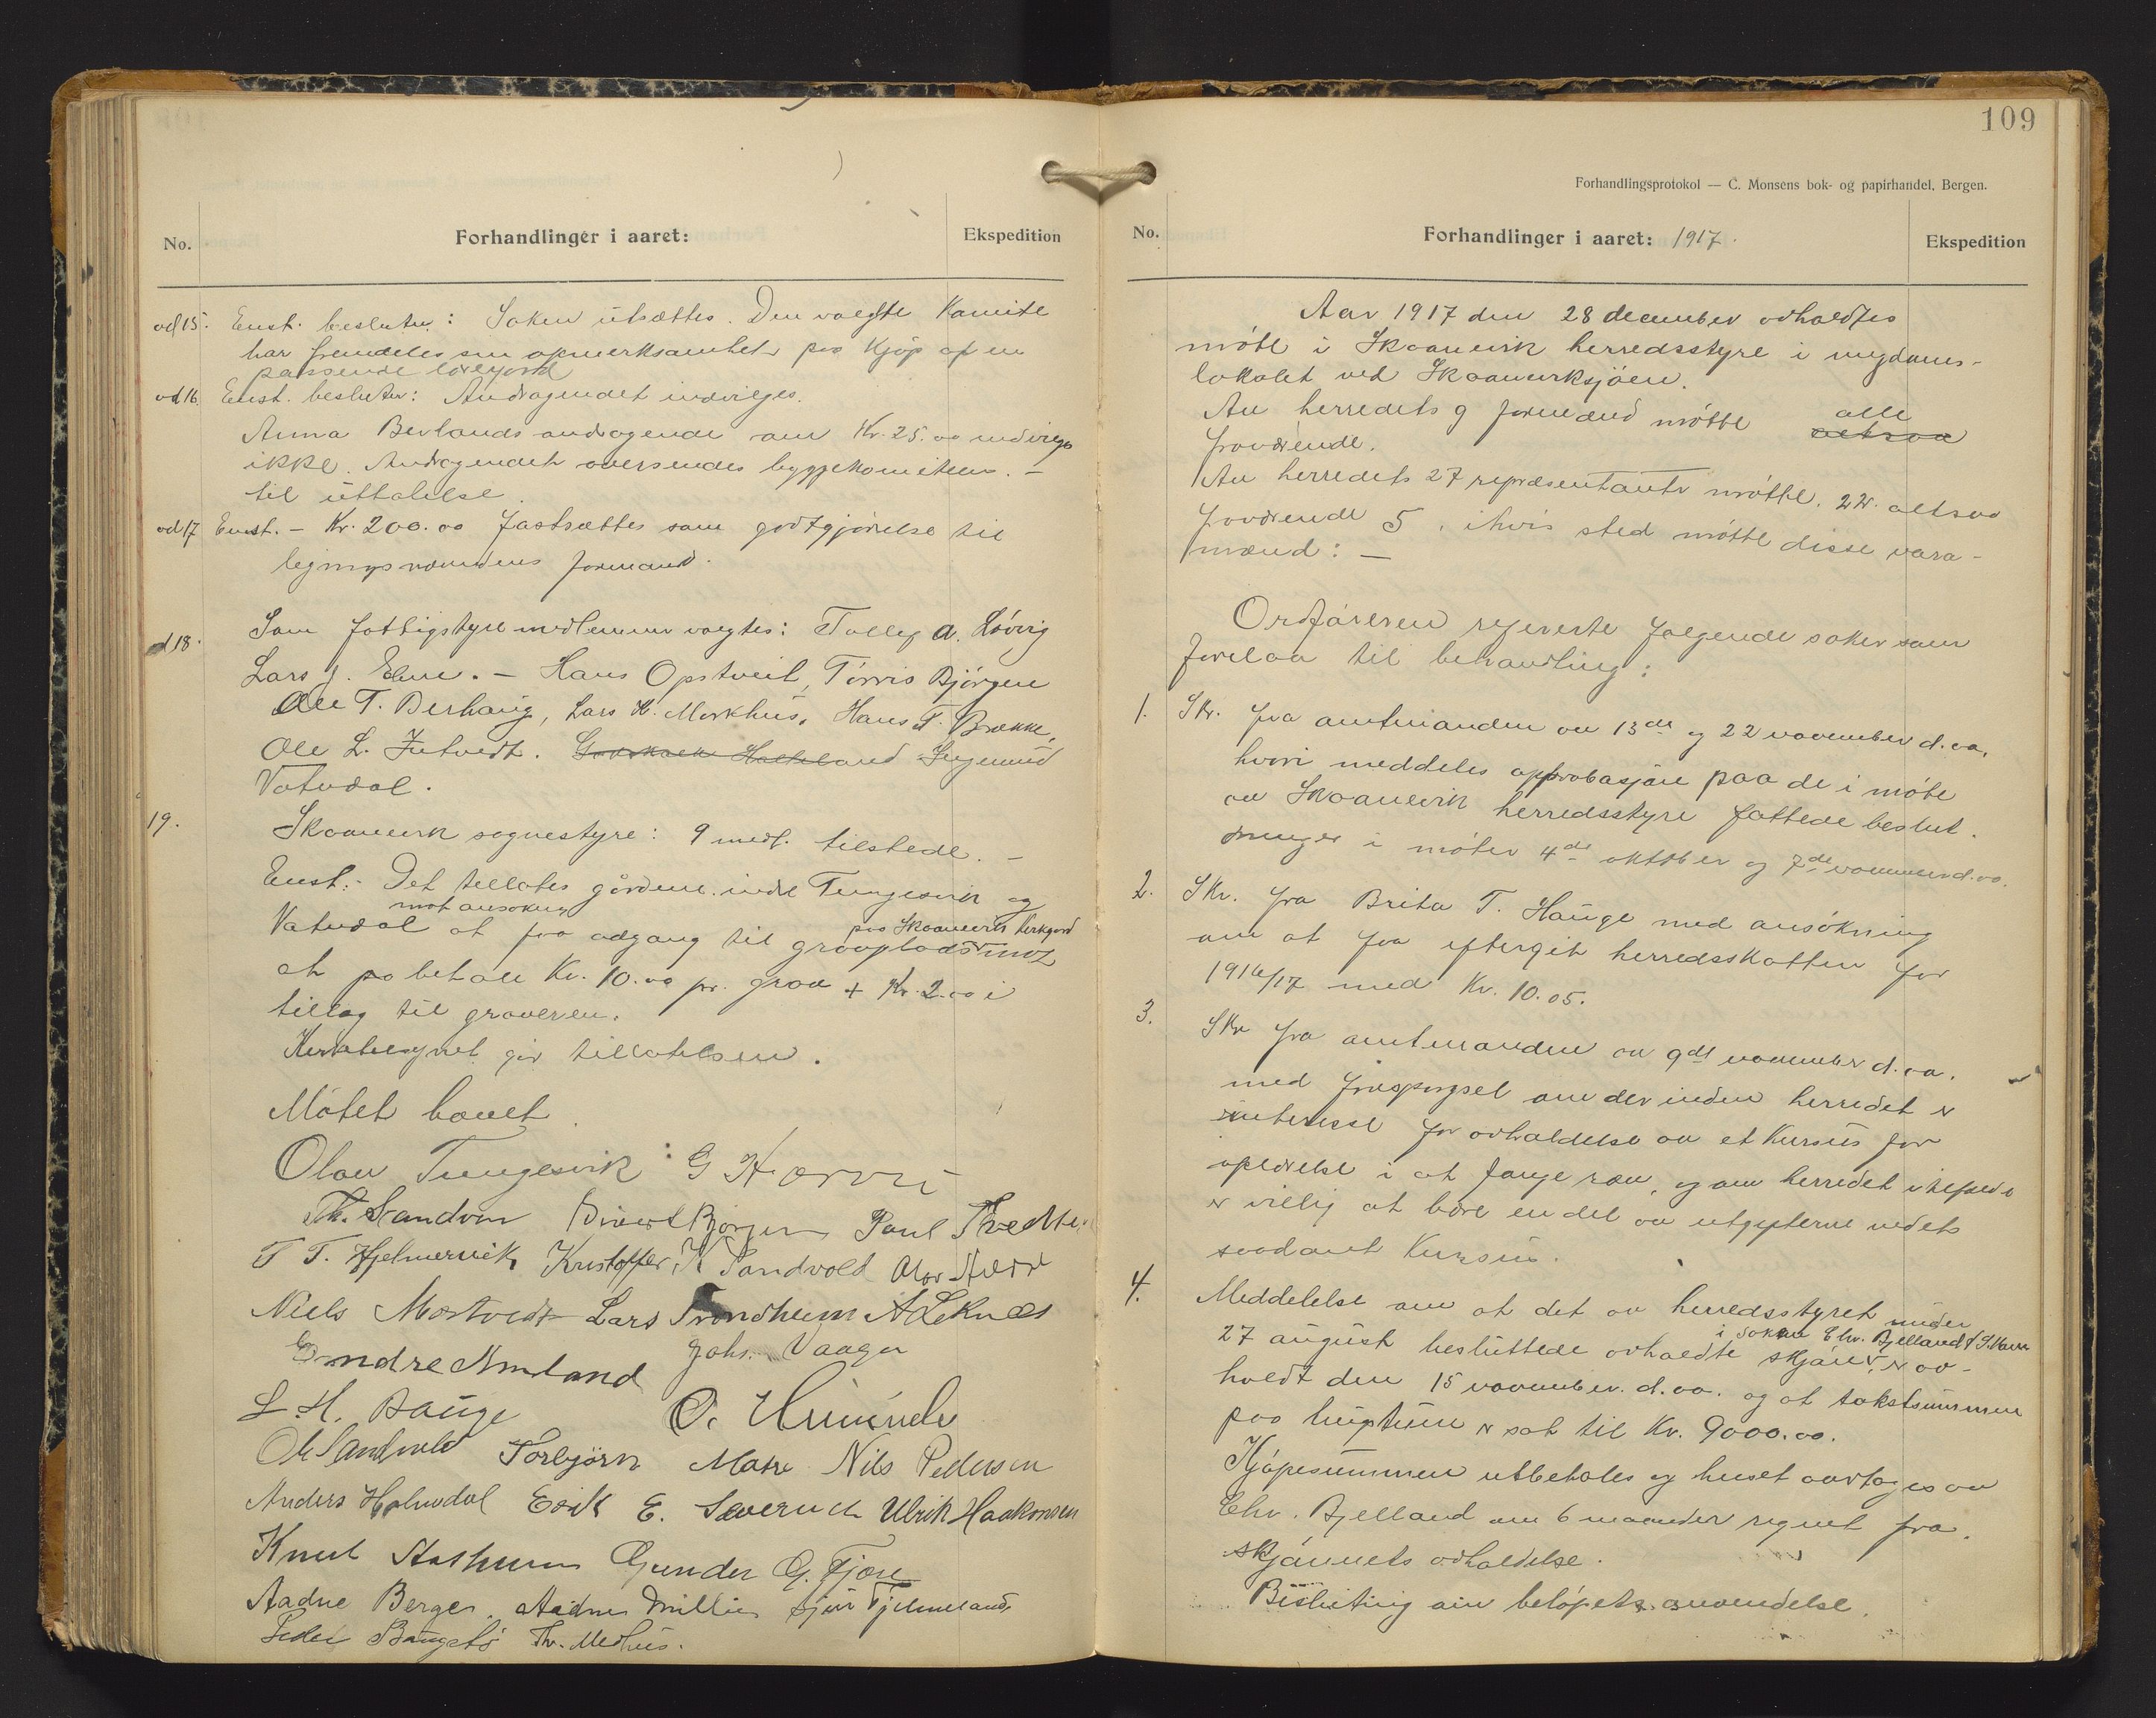 No.
Forhandlinger i aaret:
Ekspedition
ad 15. Enst. besluttet: Saken utsættes. Den valgte Komite
har fremdeles sin opmerksamhet paa Kjøp af en
passende
ad 16. Enst. besluttet: Andragendet indvilges.
Anna Berlands andragende om Kr. 25.00 indvilges
ikke. Andragendet oversendes byggekomiteen. –
til uttalelse.
ad 17 Enst. – Kr. 200.00 fastsættes som godtgjörelse til
ligningsnevndens formand.
ad 18. Som fattigstyremedlemmer valgtes: Tollef A. Løvvig
Lars J. Ebne. – Hans Opstveit, Törris Björgen
Ole T. Berhaug, Lars K. Markhus, Hans T. Brekke,
Ole L. Jutvedt. Ingemund
Vatndal.
19. Skaanevik sognestyre: 9 medl. tilstede. –
Enst: – Det tillates gårdene indre Tungesvik og
mot ansøkning
Vatndal at faa adgang til gravplads mot
paa Skaanevik Kirkgard
at betale Kr. 10.00 pr. grav + Kr. 2.00 i
tillag til graveren.
Kirketilsynet gir tillatelsen.
Mötet hævet.
Olav Tungesvik G Hærvi
Th. Sandven Sivert Björgen Paul Tvedte
T T. Hjelmervik Kristoffer K Sandvold
Niels Mostvedt Lars Trondheim A Leknes
Endre Amland Johs. Vaage
L. H. Bauge
Ole Sandvold Torbjörn Matre Nils Pedersen
Anders Holmedal Eirik E. Sævereide Ulrik Haakonsen
Knut Aasheim Gunder G. Fjære
Aadne Berge. Aadne Millie
Peder Th. Medhus.
109
Forhandlingsprotokol — C. Monsens bok- og papirhandel, Bergen.
No.
Forhandlinger i aaret: 1917.
Ekspedition
Aar 1917 den 28 december avholdtes
möte i Skaanevik herredsstyre i ungdoms-
lokalet ved Skaaneviksjöen.
Av herredets 9 formænd mötte alle altsaa
fraværende.
Av herredets 27 repræsentanter mötte. 22. altsaa
fraværende 5, i hvis sted mötte disse vara-
mænd: –
Ordföreren refererte følgende saker som
forelaa til behandling:
1. Skr. fra amtmanden av 13de og 22 november d.aa.
hvori meddeles approbasjön paa de i möte
av Skaanevik herredsstyre fattede beslut-
ninger i möter 4de oktober og 7de november d.aa.
2. Skr. fra Brita T. Hauge med ansökning
om at faa eftergit herredsskatten for
1916/17 med Kr. 10.05.
3. Skr fra amtmanden av 9de november d.aa.
med forespørgsel om der inden herredet er
interesse for avholdelse av et Kursus for
oplærelse i at fange ræv, og om herredet i tilfælde
er villig at bære en del av utgifterne ved et
saadant Kursus.
4. Meddelelse om at det av herredsstyret under
i saken Elv. Bjelland
27 august besluttede avholdte skjøn er av-
holdt den 15 november. d.aa. og at takstsummen
paa er sat til Kr. 9000.00.
Kjöpesummen utbetales og huset overtages av
Elv. Bjelland om 6 maaneder regnet fra
skjönnets avholdelse.
Beslutting om belöpets anvendelse.